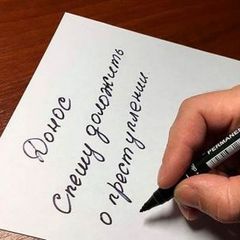 Донос
Спешу доложить
о преступлении
PERMANEN